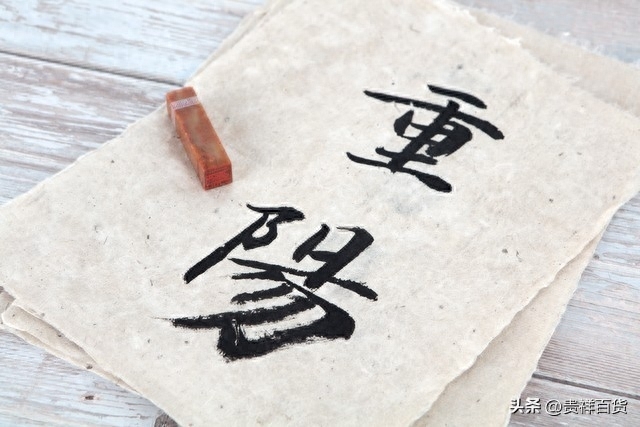 重
陽
头条 @贵祥百货